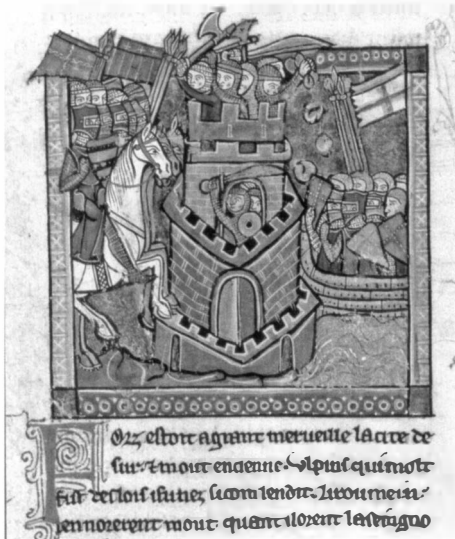 FORz estoit a grant merueille la cite de
sur. ⁊ mout encienne. Vlpius qui molt
fist des lois i fu nez. si com len dit. Li roumein.
lennorerent mout. quant il orent la seingno